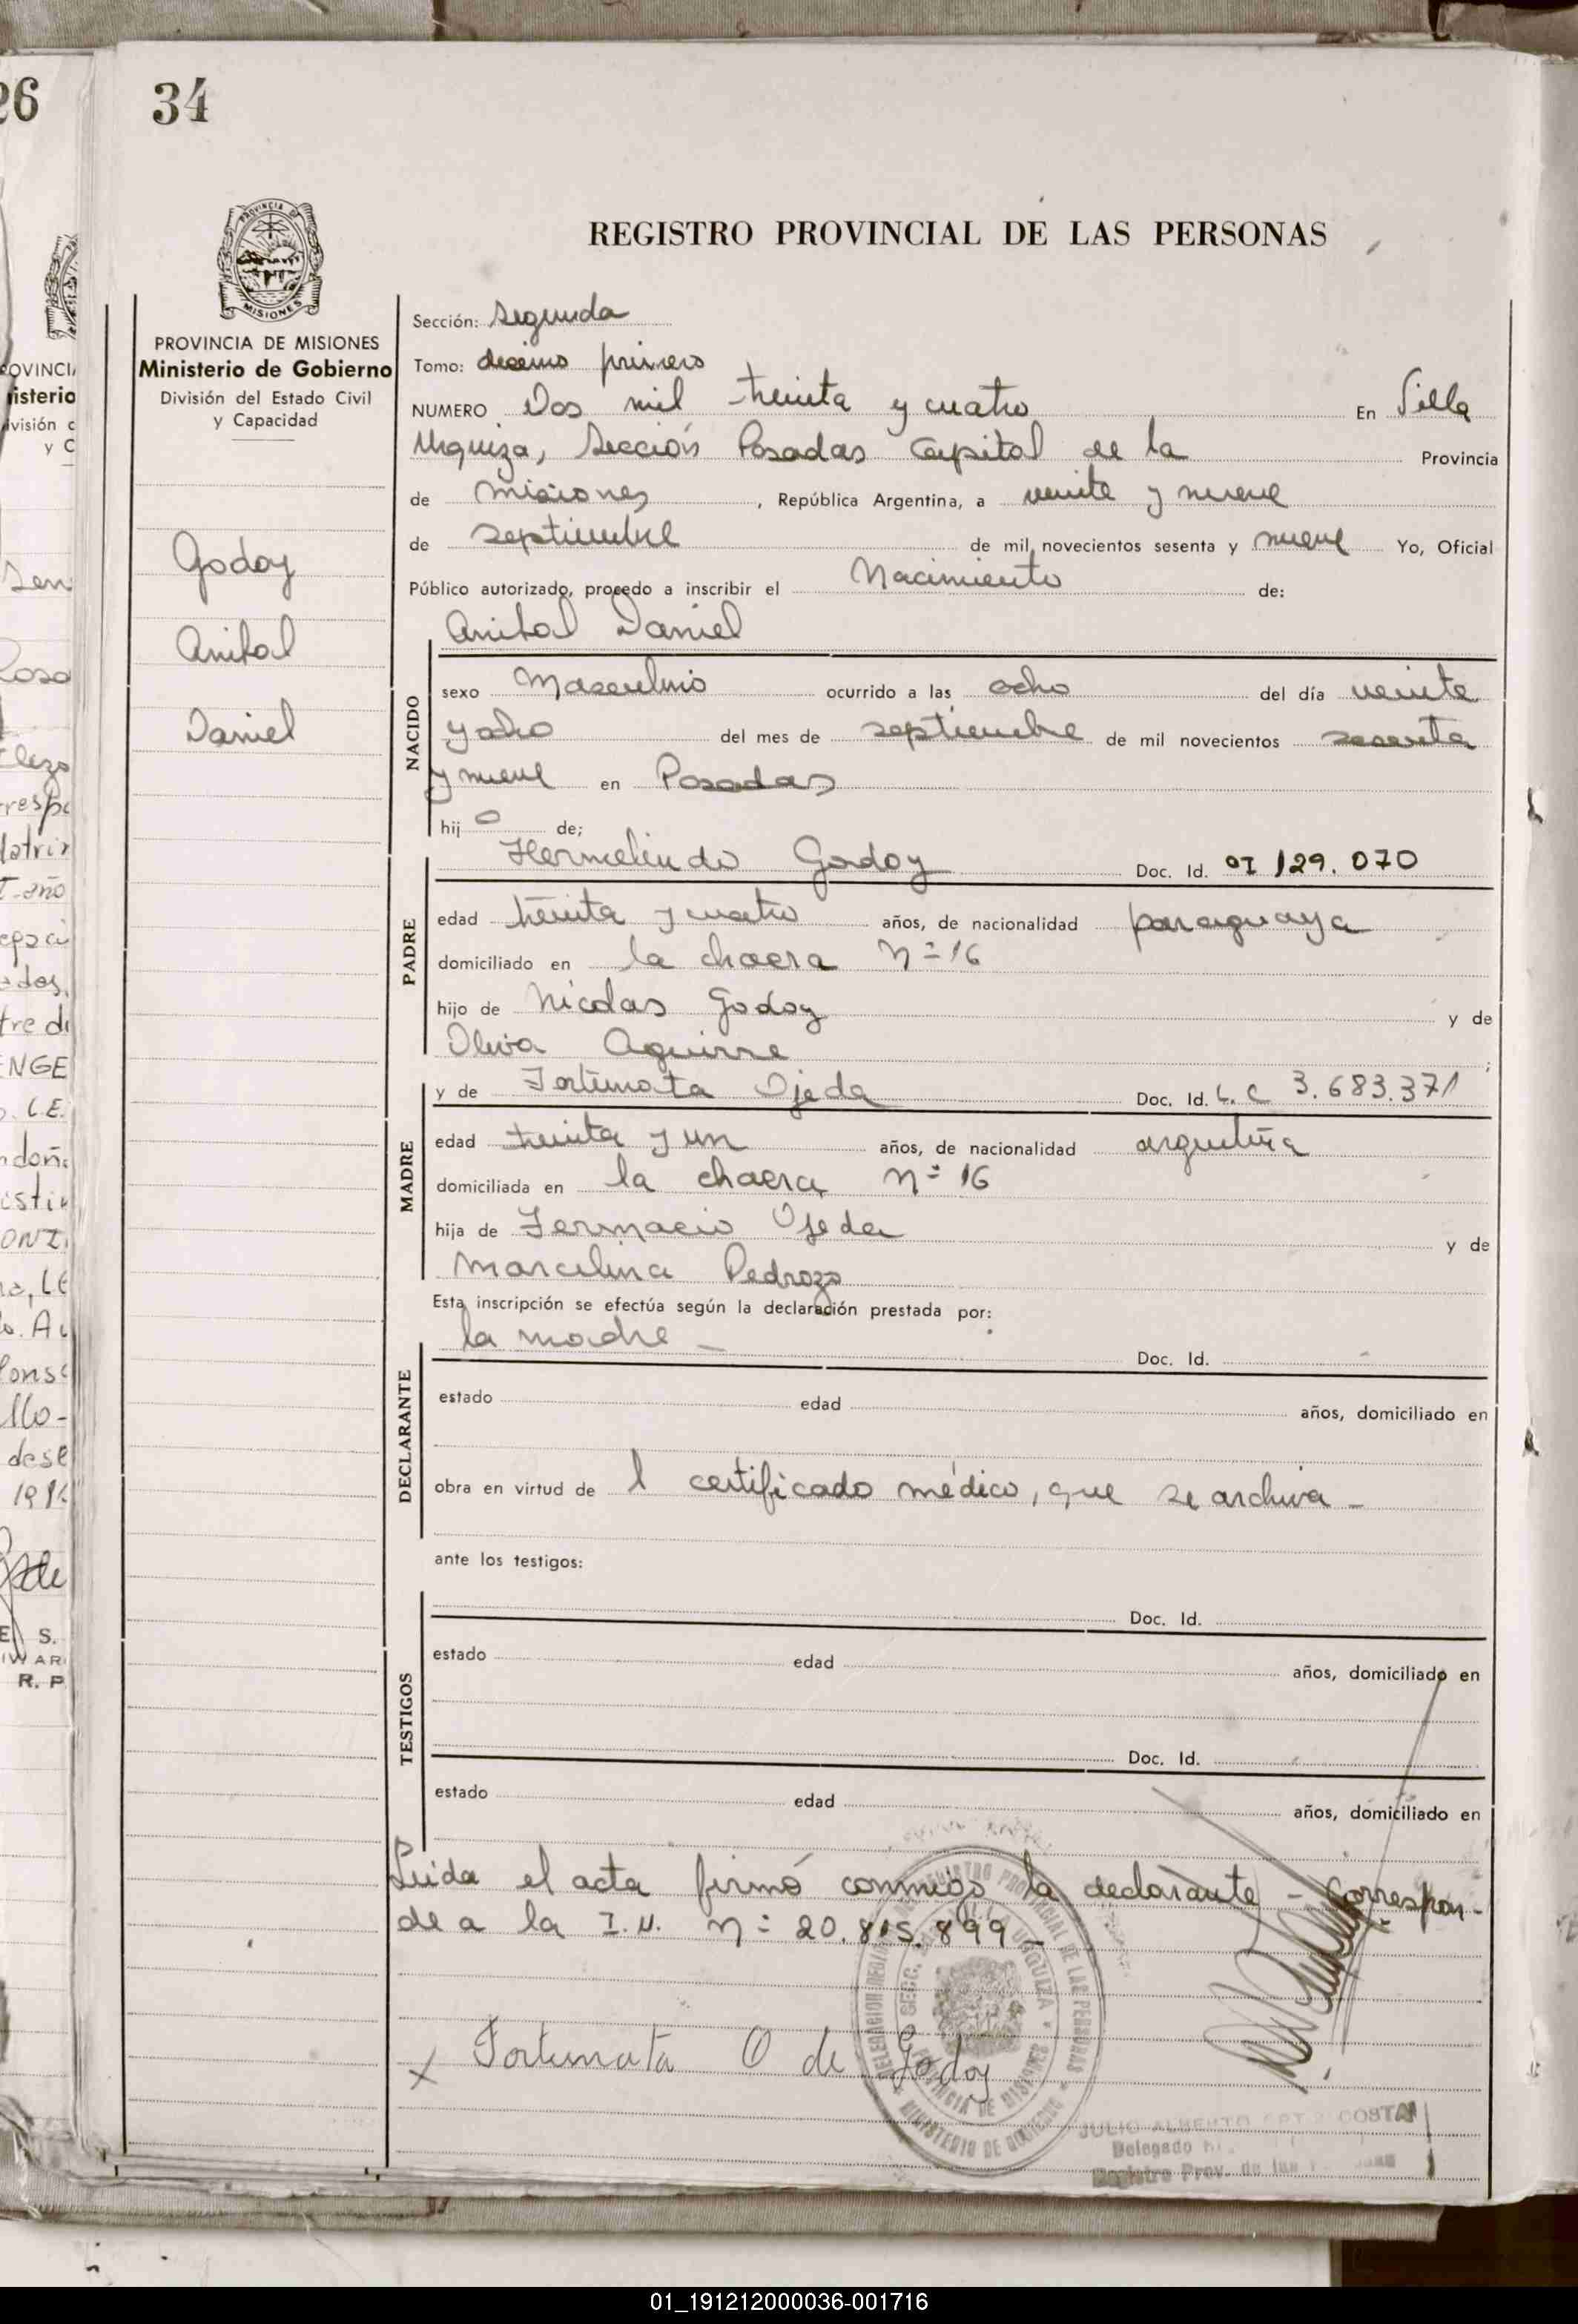 26
34
PROVINCIA DE MISIONES
REGISTRO PROVINCIAL DE LAS PERSONAS
PROVINCIA DE MISIONES
Ministerio de Gobierno
División del Estado Civil
y Capacidad
Godoy
Anibal
Daniel
Sección: Segunda
Tomo: decimo primero
NUMERO Dos mil treinta y cuatro En Villa
Urquiza, Sección Posadas Capital de la Provincia
de Misiones, República Argentina, a veinte y nueve
de septiembre de mil novecientos sesenta y nueve Yo, Oficial
Público autorizado, procedo a inscribir el Nacimiento de:
Anibal Daniel
NACIDO
sexo Masculino ocurrido a las ocho del día veinte
y ocho del mes de septiembre de mil novecientos sesenta
y nueve en Posadas
hij o de;
Hermelindo Godoy Doc. Id. CI 129.070
PADRE
edad treinta y cuatro años, de nacionalidad paraguaya
domiciliado en la chacra Nº 16
hijo de Nicolas Godoy y de
Oliva Aguirre;
y de Fortunata Ojeda Doc. Id. L. C 3.683.371
MADRE
edad treinta y un años, de nacionalidad argentina
domiciliada en la chacra Nº 16
hija de Fermacio Ojeda y de
Marcelina Pedrozo
Esta inscripción se efectúa según la declaración prestada por:
la madre - Doc. Id.
DECLARANTE
estado edad años, domiciliado en
obra en virtud de l certificado médico, que se archiva -
ante los testigos:
Doc. Id.
TESTIGOS
estado edad años, domiciliado en
Doc. Id.
estado edad años, domiciliado en
Leida el acta firmó conmigo la declarante - Correspon-
de a la I.N. Nº 20.815.899 -
x Fortunata O de Godoy
DELEGACION REGISTRO PROVINCIAL DE LAS PERSONAS
MINISTERIO DE GOBIERNO
URQUIZA
PROVINCIA DE MISIONES
JULIO ALBERTO COSTA
Delegado
Registro Prov. de las
01_191212000036-001716